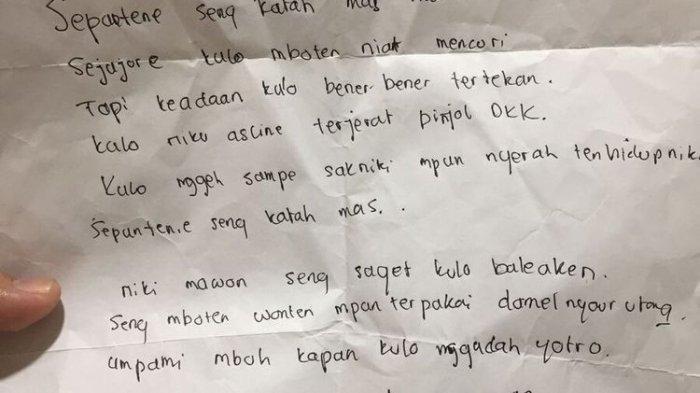 Sepuntene seng katah mas
Sejujore kulo mboten niat mencori
Tapi keadaan kulo bener-bener tertekan.
kalo niku asline terjerat pinjol OKK.
Kulo nggeh sampe sakniki mpun nyerah tenhidupnik
Sepunten.e seng katah mas. .
niki mawon seng saget kulo baleaken.
Seng mboten wonten mpun terpakai damel nyaur utang.
umpami mboh kapan kulo nggadah yotro.